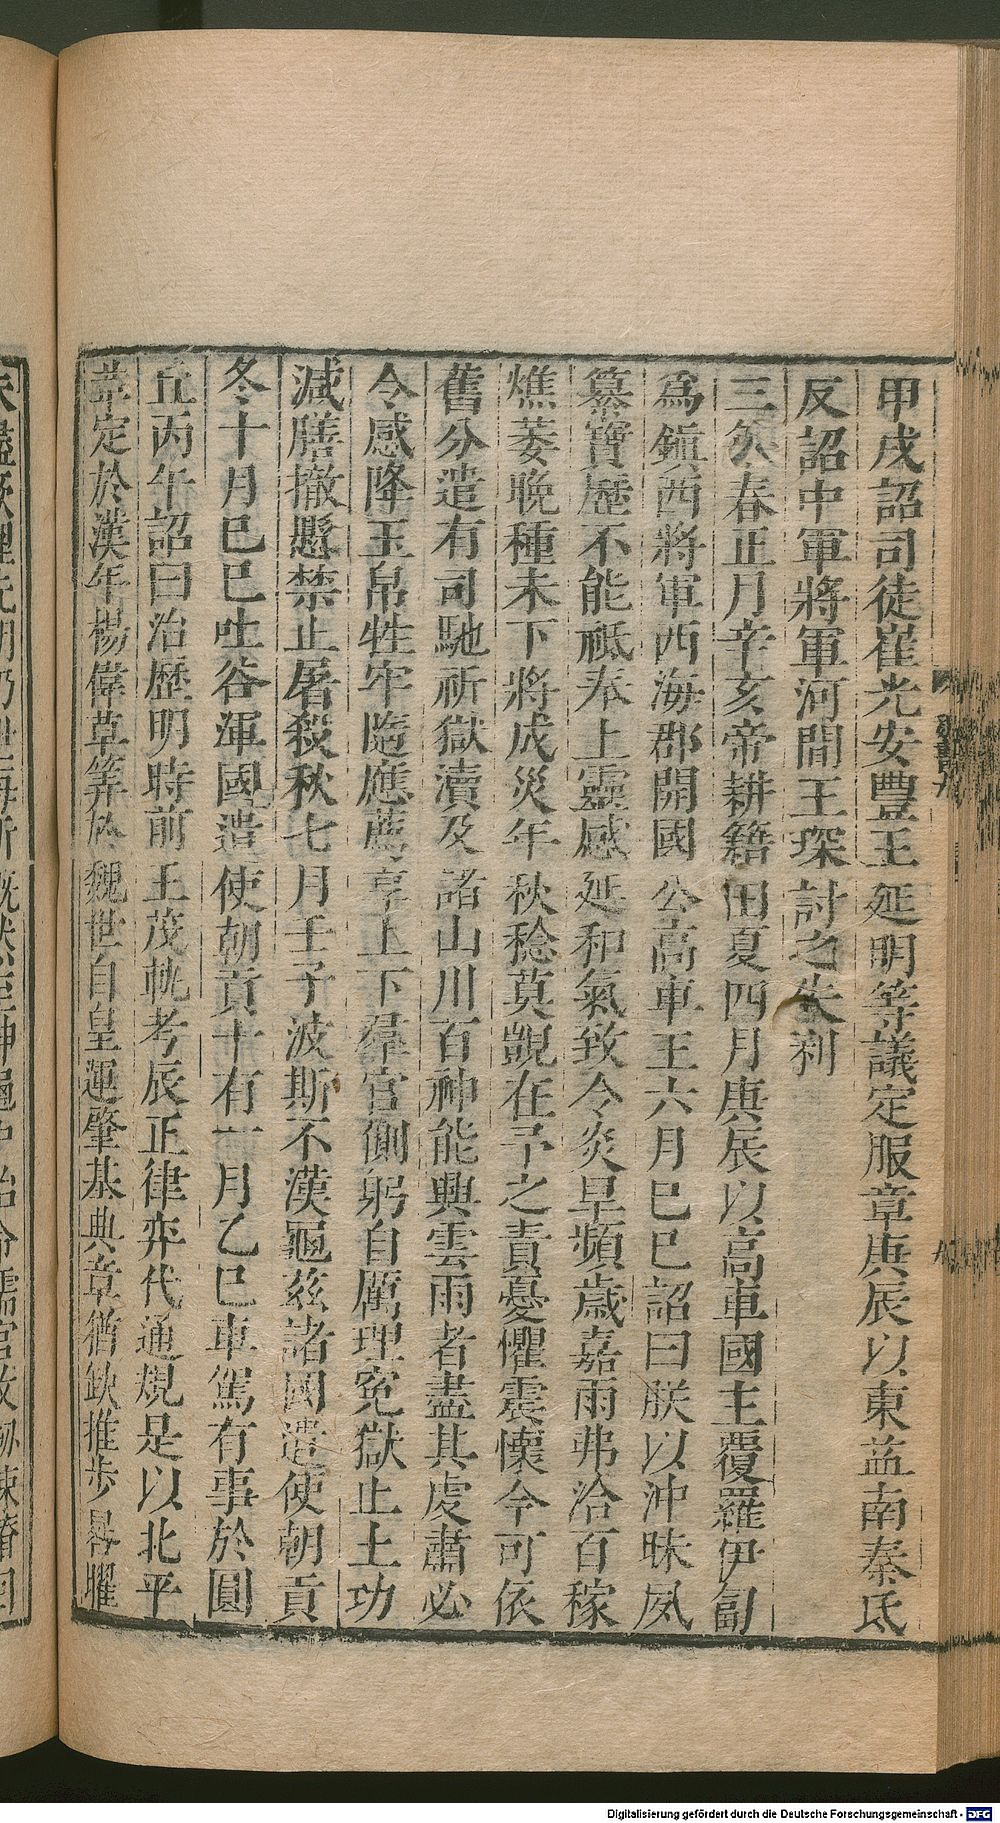 甲戌詔司徒崔光安豐王延明等議定服章庚辰以東益南秦氐
反詔中軍將軍河間王琛討之失利
三年春正月辛亥帝耕籍田夏四月庚辰以高車國主覆羅伊匐
爲鎭西將軍西海郡開國公高車王六月巳巳詔曰朕以沖昧夙
纂寶歷不能祗奉上靈感延和氣致令炎旱頻歲嘉雨弗洽百稼
燋萎晚種未下將成災年秋稔莫覬在予之責憂懼震懷今可依
舊分遣有司馳祈嶽瀆及諸山川百神能興雲雨者盡其虔肅必
令感降玉帛牲牢隨應薦享上下羣官側躬自厲理寃獄止土功
减膳撤懸禁止屠殺秋七月壬子波斯不漢龜兹諸國遣使朝貢
冬十月巳巳吐谷渾國遣使朝貢十有一月乙巳車駕有事於圓
丘丙午詔曰治歷明時前王茂軌考辰正律弈代通規是以北平
革定於漢年楊偉草筭於魏世自皇運肇基典章猶缺推步晷曜
Digitalisierung gefördert durch die Deutsche Forschungsgemeinschaft - DFG